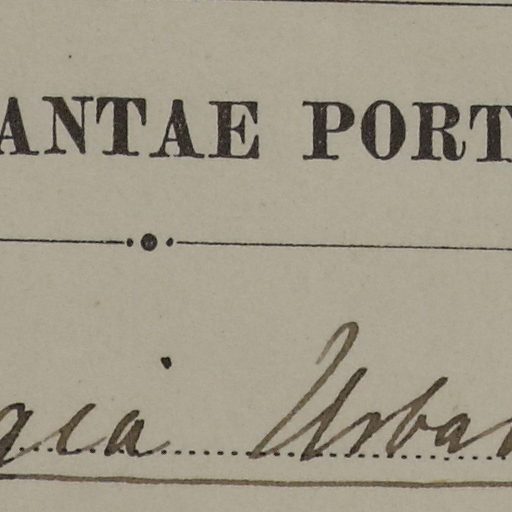 ANTAE PORT
gia Urban